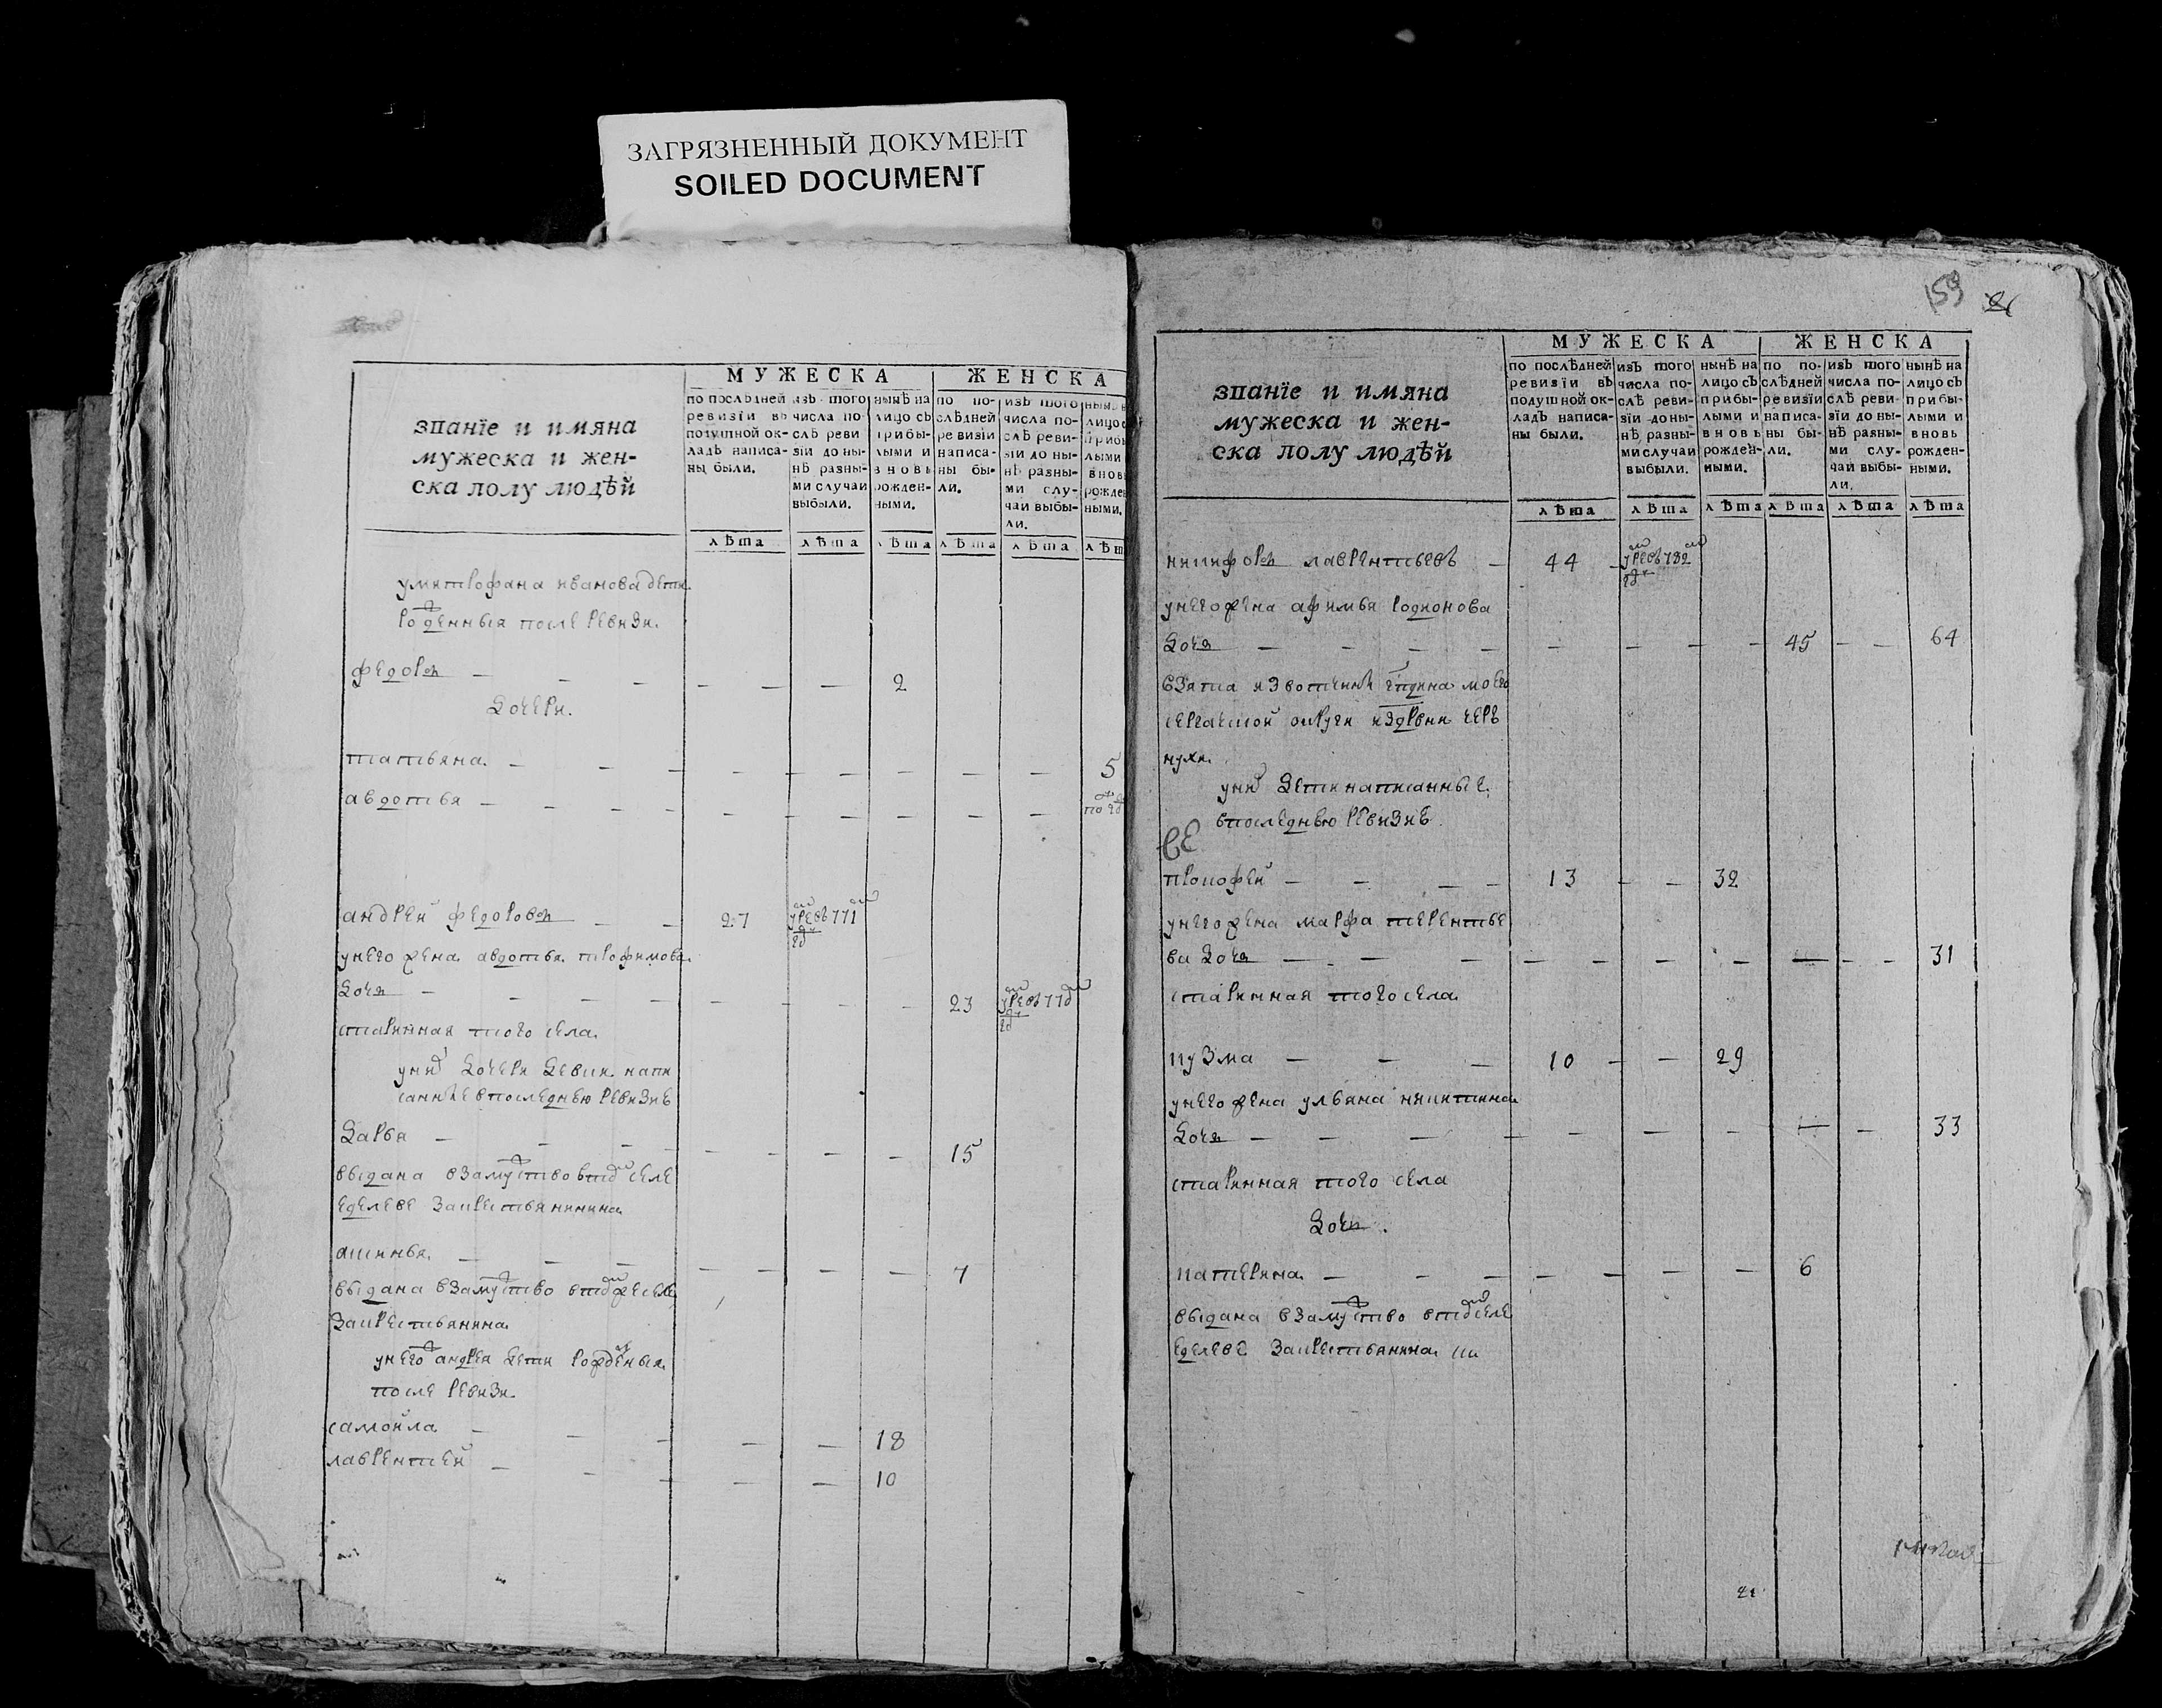 ЗАГРЯЗНЕННЫЙ ДОКУМЕНТ
SOILED DOCUMENT
званїе и имяна
мужеска и жен-
ска полу людѣй
МУЖЕСКА
ЖЕНСКА
по послѣдней ревизїи въ подушной ок-ладъ написа-ны были.
изъ того числа по слѣ реви зїи до ны-нѣ разны-ми случаи выбыли.
нынѣ на лицо съ прибы-лыми и вновь рожден-ными.
по по-слѣдней ревизїи написа-ны бы-ли.
изъ того числа по-слѣ реви-зїи до ны-нѣ разны-ми слу-чаи выбы-ли.
лѣта лѣта лѣта лѣта лѣта
у митрофана иванова дети
рожденныя после ревизи
федоръ — — — — — — 2
дочери
татьяна — — — — — — — — — 5
авдотья — — — — — — — — — —
андрей федоровъ — — 27 умре въ 771 год
у него жена авдотья трофимова
дочь — — — — — — — 23 умре въ 77
старинная того села
у них дочери девки напи
санные в последнею ревизию
дарья — — — — — — — 15
выдана взамужство в том селе
еделеве за крестьянина
аксинья — — — — — — — 7
выдана взамужство в том же селе
за крестьянина
у него андрея дети рожденыя
после ревизи
самойла — — — — — 18
лаврентей — — — — — 10
159
званїе и имяна
мужеска и жен-
ска полу людѣй
МУЖЕСКА
ЖЕНСКА
по послѣдней ревизїи въ подушной ок-ладъ написа-ны были.
изъ того числа по-слѣ реви-зїи до ны-нѣ разны-ми случаи выбыли.
нынѣ на лицо съ прибы-лыми и вновь рожден-ными.
по по-слѣдней ревизїи написа-ны бы-ли.
изъ того числа по-слѣ реви-зїи до ны-нѣ разны-ми слу-чаи выбы-ли.
нынѣ на лицо съ прибы-лыми и вновь рожден-ными.
лѣта лѣта лѣта лѣта лѣта лѣта
никифоръ лаврентьевъ — 44 умре въ 782 год
у него жена афимья родионова
дочь — — — — — — — — 45 — — 64
взята из вотчины гпдина моего
сергацкой округи из дрвни черъ
нухи
у них дети написанные
в последнею ревизию
ве
прокофей — — — — 13 — — 32
у него жена марфа терентье
ва дочь — — — — — — — — — — 31
старинная того села
кузма — — — 10 — — 29
у него жена ульяна никитина
дочь — — — — — — — — — 33
старинная того села
дочь
катерина — — — — — — — 6
выдана взамужство в том селе
еделеве за крестьянина